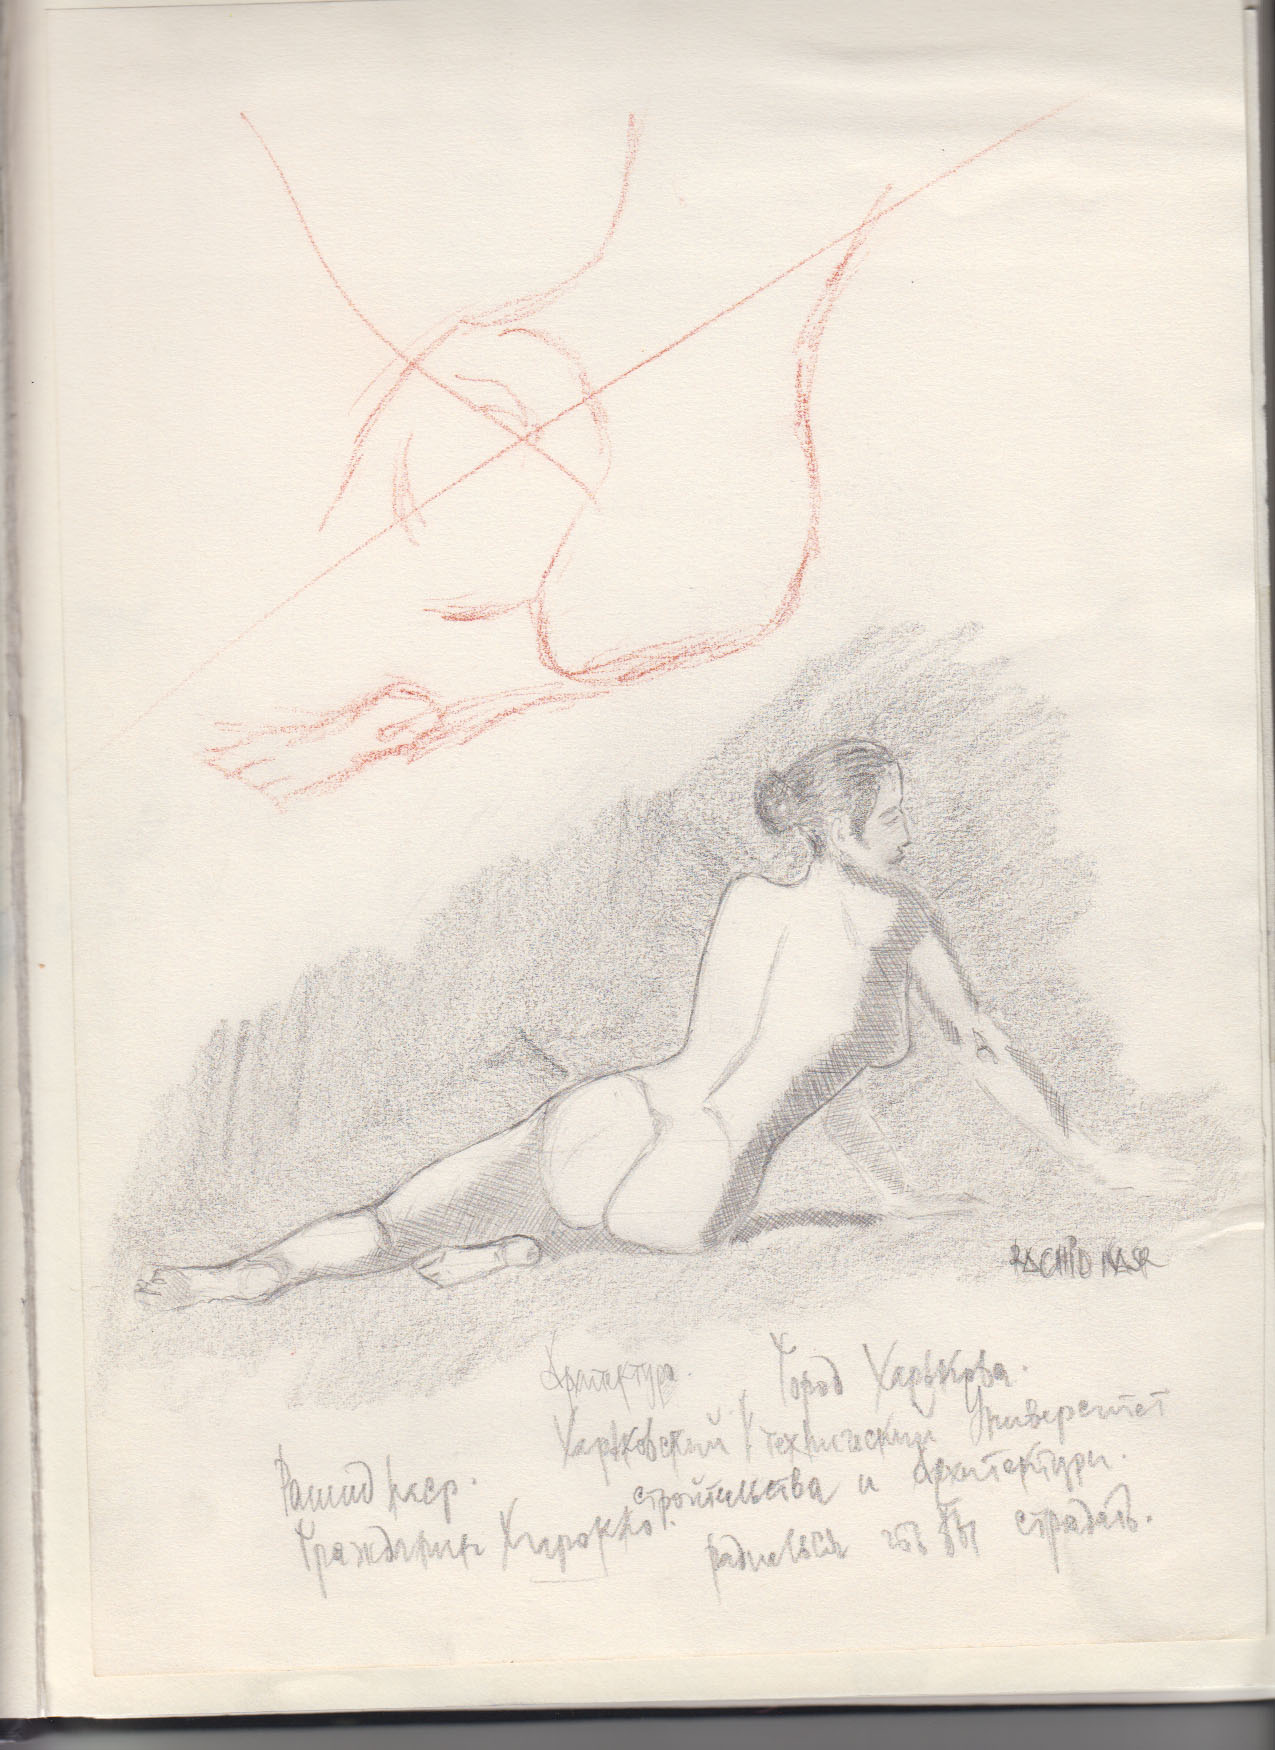 RACHID NASR
Архитектура. Город Харькова.
Харьковский технический Университет
строительства и Архитектуры.
Рашид Наср.
Гражданин
родился что бы страдать.